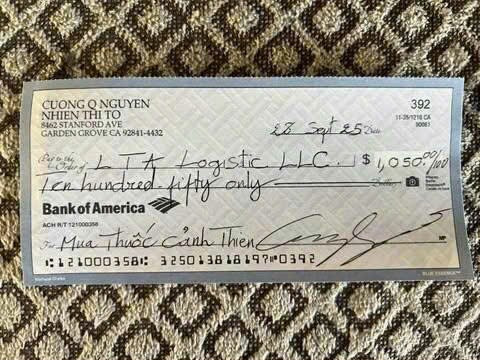 CUONG Q NGUYEN
NHIEN THI TO
8462 STANFORD AVE
GARDEN GROVE CA 92841-4432
392
11-35/1210 CA
90061
28 Sept 25 Date
Pay to the Order of LTK Logistic LLC. $ 1,050.00/100
Ten hundred fifty only Dollars
Bank of America
ACH R/T 121000358
For Mua Thuốc Cảnh Thiên
MP
⑆121000358⑆ 325013818197⑈0392
Harland Clarke
BLUE ESSENCE